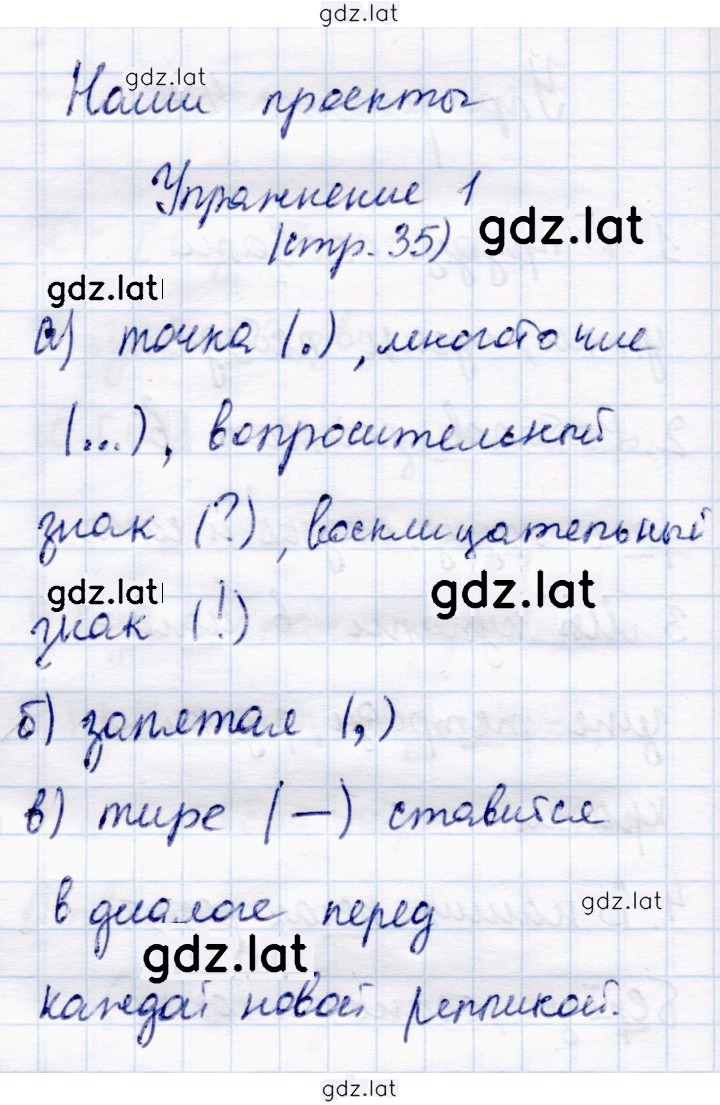 gdz.lat
gdz.lat
Наши проекты
Упражнение 1
(стр. 35)
gdz.lat
gdz.lat
а) точка (.), многоточие
(...), вопросительный
знак (?), восклицательный
gdz.lat
gdz.lat
знак (!)
б) запятая (,)
в) тире (—) ставится
в диалоге перед
gdz.lat
gdz.lat
каждой новой репликой.
gdz.lat